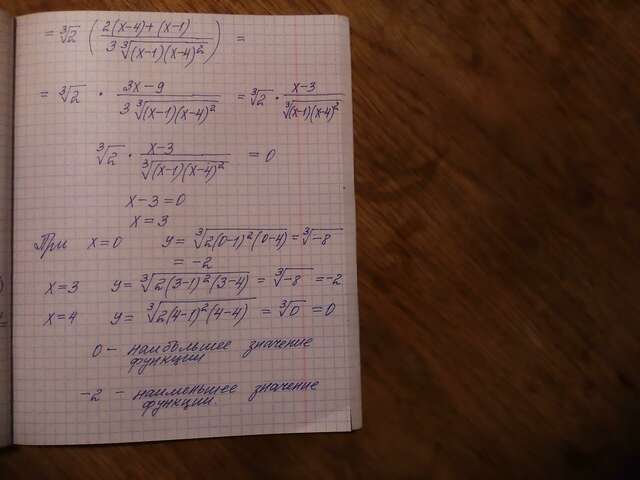 = ∛2 ( (2(x-4)+(x-1)) / (3∛((x-1)(x-4)²)) ) =
= ∛2 · (3x-9) / (3∛((x-1)(x-4)²)) = ∛2 · (x-3) / ∛((x-1)(x-4)²)
∛2 · (x-3) / ∛((x-1)(x-4)²) = 0
x-3=0
x=3
При x=0 y= ∛(2(0-1)²(0-4)) = ∛-8
= -2
x=3 y= ∛(2(3-1)²(3-4)) = ∛-8 = -2
x=4 y= ∛(2(4-1)²(4-4)) = ∛0 = 0
0 - наибольшее значение
функции
-2 - наименьшее значение
функции.